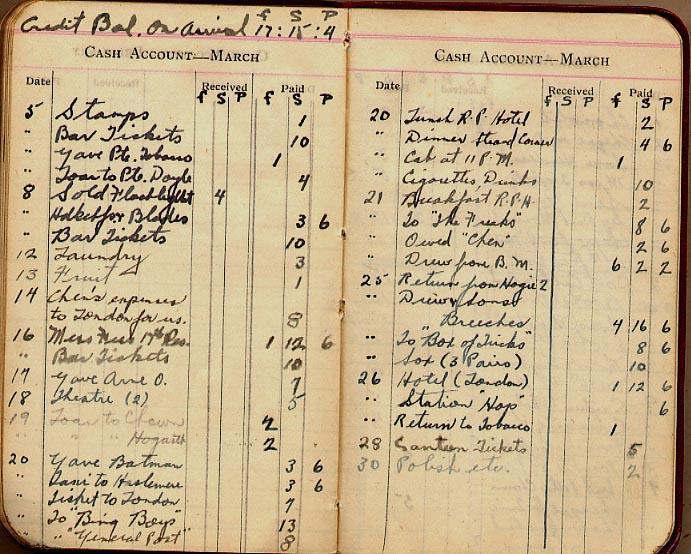 Credit Bal. On Arrival £ S P 17:15:4
CASH ACCOUNT—MARCH
Date Received Paid
£ S P £ S P
5 Stamps 1
" Bar Tickets 10
" Gave Pte. Tobacco 1
" Loan to Pte. Doyle 4
8 Sold Flashlight 4
" Blades 3 6
" Bar Tickets 10
12 Laundry 3
13 Fruit 1
14 Chen's expenses
to London for us. 8
16 Mess 17th Res. 1 12 6
" Bar Tickets 10
17 Gave O. 7
18 Theatre (2) 5
19 Loan to 2
" " Hogarth 2
20 Gave Batman 3 6
" Taxi to Haslemere 3 6
" Ticket to London 7
" To "Bing Boys" 13
" " "General Post" 8
CASH ACCOUNT—MARCH
Date Received Paid
£ S P £ S P
20 Lunch R.P. Hotel 2
" Dinner Strand Corner 4 6
" Cab at 11 P.M. 1
" Cigarettes, Drinks 10
21 Breakfast R.P.H. 2
" To "The Freaks" 8 6
" Owed "Chen" 2 6
" Drew from B. M. 6 2 2
25 Return from Hogie 2
" Drew & Sons
" Breeches 4 16 6
" To "Box of Tricks" 8 6
" Sox (3 Pairs) 10
26 Hotel (London) 1 12 6
" Station "Hop" 6
" Return to Tobacco 1
28 Canteen Tickets 5
30 Polish etc. 2